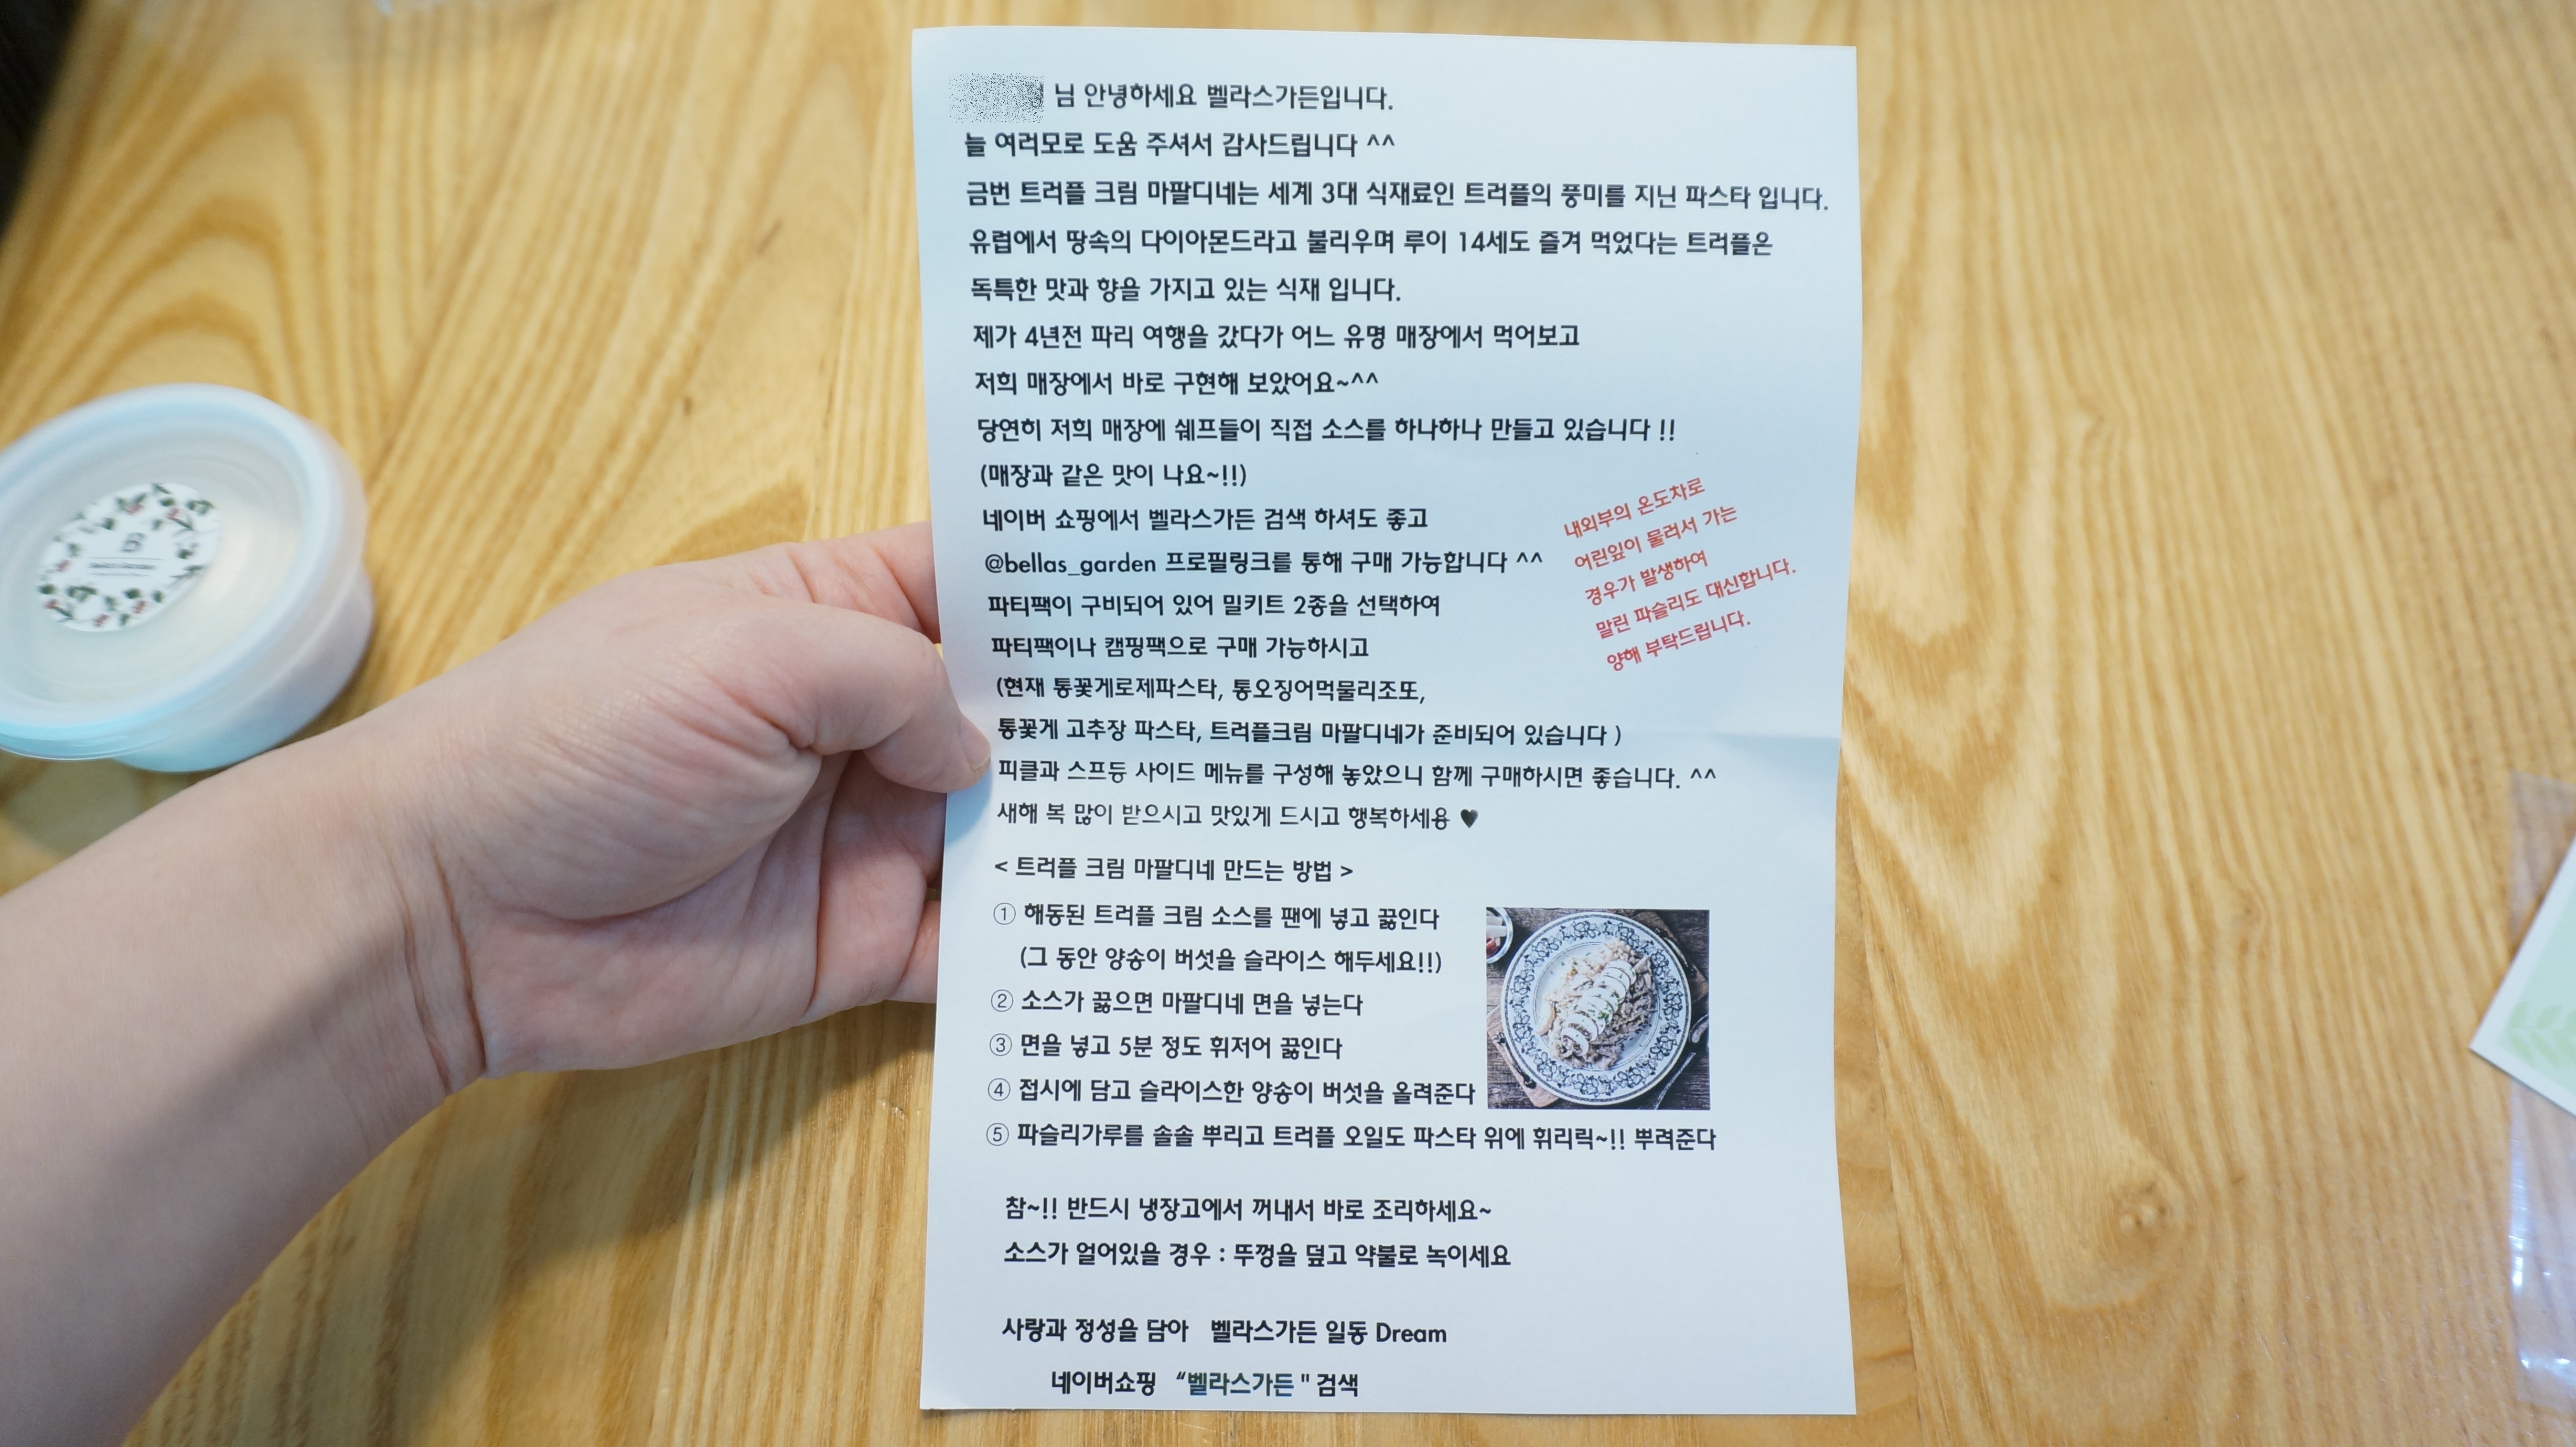 님 안녕하세요 벨라스가든입니다.
늘 여러모로 도움 주셔서 감사드립니다 ^^
금번 트러플 크림 마팔디네는 세계 3대 식재료인 트러플의 풍미를 지닌 파스타 입니다.
유럽에서 땅속의 다이아몬드라고 불리우며 루이 14세도 즐겨 먹었다는 트러플은
독특한 맛과 향을 가지고 있는 식재 입니다.
제가 4년전 파리 여행을 갔다가 어느 유명 매장에서 먹어보고
저희 매장에서 바로 구현해 보았어요~^^
당연히 저희 매장에 쉐프들이 직접 소스를 하나하나 만들고 있습니다 !!
(매장과 같은 맛이 나요~!!)
네이버 쇼핑에서 벨라스가든 검색 하셔도 좋고
@bellas_garden 프로필링크를 통해 구매 가능합니다 ^^
파티팩이 구비되어 있어 밀키트 2종을 선택하여
파티팩이나 캠핑팩으로 구매 가능하시고
(현재 통꽃게로제파스타, 통오징어먹물리조또,
통꽃게 고추장 파스타, 트러플크림 마팔디네가 준비되어 있습니다 )
피클과 스프등 사이드 메뉴를 구성해 놓았으니 함께 구매하시면 좋습니다. ^^
새해 복 많이 받으시고 맛있게 드시고 행복하세용 ♥
내외부의 온도차로
어린잎이 물러서 가는
경우가 발생하여
말린 파슬리도 대신합니다.
양해 부탁드립니다.
< 트러플 크림 마팔디네 만드는 방법 >
① 해동된 트러플 크림 소스를 팬에 넣고 끓인다
(그 동안 양송이 버섯을 슬라이스 해두세요!!)
② 소스가 끓으면 마팔디네 면을 넣는다
③ 면을 넣고 5분 정도 휘저어 끓인다
④ 접시에 담고 슬라이스한 양송이 버섯을 올려준다
⑤ 파슬리가루를 솔솔 뿌리고 트러플 오일도 파스타 위에 휘리릭~!! 뿌려준다
참~!! 반드시 냉장고에서 꺼내서 바로 조리하세요~
소스가 얼어있을 경우 : 뚜껑을 덮고 약불로 녹이세요
사랑과 정성을 담아 벨라스가든 일동 Dream
네이버쇼핑 “벨라스가든 " 검색
B